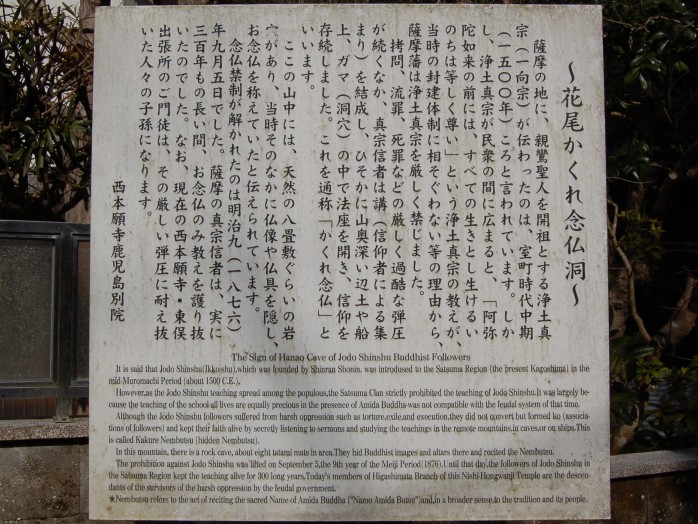 ～花尾かくれ念仏洞～
薩摩の地に、親鸞聖人を開祖とする浄土真
宗（一向宗）が伝わったのは、室町時代中期
（一五〇〇年）ころと言われています。しか
し、浄土真宗が民衆の間に広まると、「阿弥
陀如来の前には、すべての生きとし生けるい
のちは等しく尊い」という浄土真宗の教えが、
当時の封建体制に相そぐわない等の理由から、
薩摩藩は浄土真宗を厳しく禁じました。
拷問、流罪、死罪などの厳しく過酷な弾圧
が続くなか、真宗信者は講（信仰者による集
まり）を結成し、ひそかに山奥深い辺土や船
上、ガマ（洞穴）の中で法座を開き、信仰を
存続しました。これを通称「かくれ念仏」と
いいます。
ここの山中には、天然の八畳敷ぐらいの岩
穴があり、当時そのなかに仏像や仏具を隠し、
お念仏を称えていたと伝えられています。
念仏禁制が解かれたのは明治九（一八七六）
年九月五日でした。薩摩の真宗信者は、実に
三百年もの長い間、お念仏のみ教えを護り抜
いたのでした。なお、現在の西本願寺・東俣
出張所のご門徒は、その厳しい弾圧に耐え抜
いた人々の子孫になります。
西本願寺鹿児島別院
The Sign of Hanao Cave of Jodo Shinshu Buddhist Followers
It is said that Jodo Shinshu(Ikkoshu),which was founded by Shinran Shonin, was introdused to the Satsuma Region (the present Kagoshima) in the
mid-Muromachi Period (about 1500 C.E.).
However,as the Jodo Shinshu teaching spread among the populous,the Satsuma Clan strictly prohibited the teaching of Jodo Shinshu.It was largely be-
cause the teaching of the school-all lives are equally precious in the presence of Amida Buddha-was not compatible with the feudal system of that time.
Although the Jodo Shinshu followers suffered from harsh oppression such as torture,exile,and execution,they did not convert but formed ko (associa-
tions of followers) and kept their faith alive by secretly listening to sermons and studying the teachings in the remote mountains,in caves,or on ships.This
is called Kakure Nembutsu (hidden Nembutsu).
In this mountain, there is a rock cave, about eight tatami mats in area.They hid Buddhist images and altars there and recited the Nembutsu.
The prohibition against Jodo Shinshu was lifted on September 5,the 9th year of the Meiji Period(1876).Until that day,the followers of Jodo Shinshu in
the Satsuma Region kept the teaching alive for 300 long years.Today's members of Higashimata Branch of this Nishi-Hongwanji Temple are the descen-
dants of the survivors of the harsh oppression by the feudal government.
★Nembutsu refers to the act of reciting the sacred Name of Amida Buddha ("Namo Amida Butsu")and,in a broader sense,to the tradition and its people.